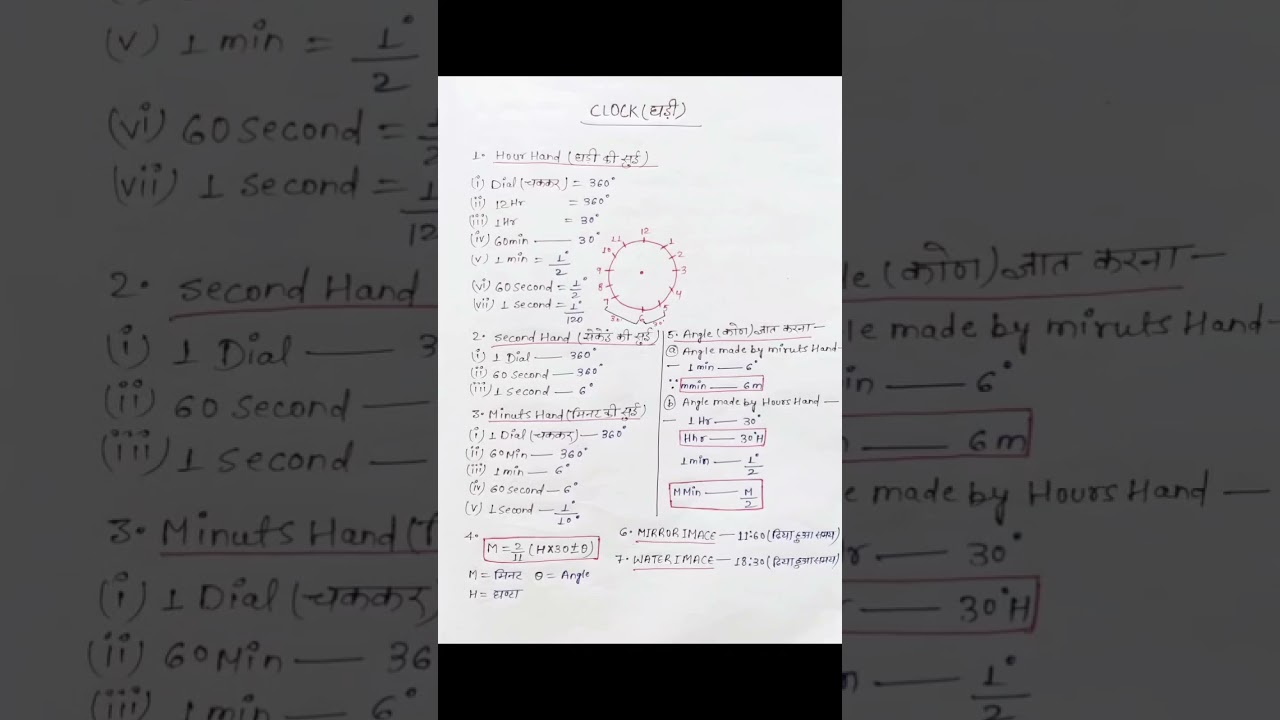 CLOCK (घड़ी)
1. Hour Hand (घड़ी की सुई)
(i) Dial (चक्कर) = 360°
(ii) 12Hr = 360°
(iii) 1Hr = 30°
(iv) 60min — 30°
(v) 1 min = 1°/2
(vi) 60 Second = 1°/2
(vii) 1 Second = 1°/120
12
1
2
3
4
5
6
7
8
9
10
11
30°
30°
2. Second Hand (सेकेंड की सुई)
(i) 1 Dial — 360°
(ii) 60 Second — 360°
(iii) 1 Second — 6°
3. Minuts Hand (मिनट की सुई)
(i) 1 Dial (चक्कर) — 360°
(ii) 60 Min — 360°
(iii) 1 min — 6°
(iv) 60 Second — 6°
(v) 1 Second — 1°/10
4.
M = 2/11 (H×30±θ)
M = मिनट θ = Angle
H = घण्टा
5. Angle (कोण) ज्ञात करना —
(a) Angle made by miruts Hand —
— 1 min — 6°
∵ mmin — 6m
(b) Angle made by Hours Hand —
— 1Hr — 30°
Hhr — 30°H
1min — 1°/2
MMin — M/2
6. MIRROR IMACE — 11:60 (दिया हुआ समय)
7. WATER IMACE — 18:30 (दिया हुआ समय)
(v) 1 min = 1°/2
(vi) 60 Second =
(vii) 1 Second =
120
2. Second Hand
(i) 1 Dial —
(ii) 60 Second —
(iii) 1 Second —
3. Minuts Hand
(i) 1 Dial (चक्कर)
(ii) 60 Min — 36
(iii) 1 min — 6°
le (कोण) ज्ञात करना —
le made by miruts Hand —
in — 6°
— 6m
made by Hours Hand —
r — 30°
— 30°H
— 1°/2